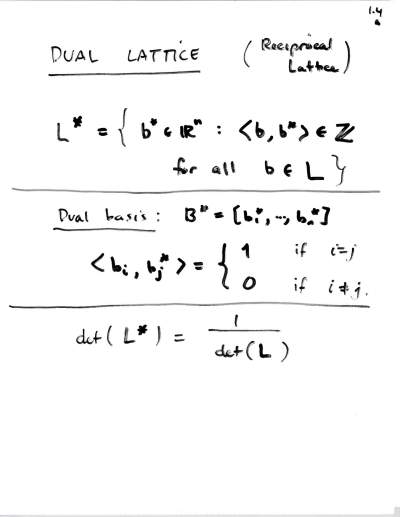 1.4
DUAL LATTICE (Reciprocal Lattice)
L* = { b* ∈ ℝⁿ : <b, b*> ∈ ℤ
for all b ∈ L }
Dual basis: B* = [b₁*, .., bₙ*]
<bᵢ, bⱼ*> = { 1 if i=j
0 if i≠j.
det(L*) = 1 / det(L)